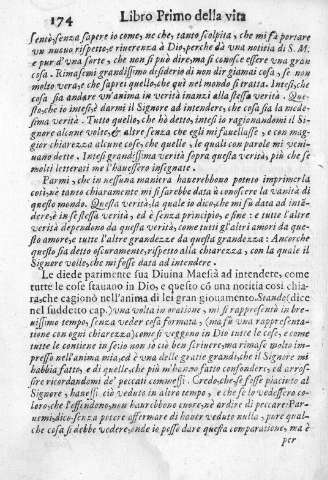 174 Libro Primo della vita
sento, senza sapere io come, ne che, tanto scolpita, che mi fà portare
vn nuouo rispetto, e riuerenza à Dio, perche dà vna notitia di S. M.
e pur d'vna sorte, che non si può dire, ma si conosce essere vna gran
cosa. Rimasemi grandissimo desiderio di non dir giamai cosa, se non
molto vera, e che saprei quello, che quì nel mondo si tratta. Intesi, che
cosa sia andare vn'anima in verità innanzi alla stessa verità. Que-
sto, che io intesi, è darmi il Signore ad intendere, che cosa sia la mede-
sima verità. Tutto quello, che hò detto, intesi io ragionandomi il Si-
gnore alcune volte, & altre senza che egli mi fauellasse, e con mag-
gior chiarezza alcune cose, che quelle, le quali con parole mi veni-
uano dette. Intesi grandissima verità sopra questa verità, più che se
molti letterati me l'hauessero insegnata.
Parmi, che in nessuna maniera haurebbono potuto imprimerla
così, ne tanto chiaramente mi si sarebbe data à conoscere la vanità di
questo mondo. Questa verità, la quale io dico, che mi fù data ad intẽ-
dere, è in se stessa verità, ed è senza principio, e fine: e tutte l'altre
verità dependono da questa verità, come tutti gl'altri amori da que-
sto amore, e tutte l'altre grandezze da questa grandezza: Ancorche
questo sia detto oscuramente, rispetto alla chiarezza, con la quale il
Signore volle, che mi fosse data ad intendere.
Le diede parimente sua Diuina Maestà ad intendere, come
tutte le cose stauano in Dio, e questo cõ una notitia così chia-
ra, che cagionò nell'anima di lei gran giouamento. Stando (dice
nel suddetto cap.) vna volta in oratione, mi si rappresentò in bre-
uissimo tempo, senza veder cosa formata, (ma fù vna rappresenta-
tione con ogni chiarezza) come si veggono in Dio tutte le cose, e come
tutte le contiene in se: io non sò ciò ben scriuere, ma rimase molto im-
presso nell'anima mia, ed è vna delle gratie grandi, che il Signore mi
habbia fatto, e di quelle, che più m'hanno fatto confondere, ed arros-
sire ricordandomi de' peccati commessi. Credo, che se fosse piaciuto al
Signore, hauessi ciò veduto in altro tempo, e che se lo vedessero co-
loro, che l'offendono, non haurebbono cuore, nè ardire di peccare. Par-
uemi, dico, senza potere affermar di hauer veduto nulla, pure qual-
che cosa si debbe vedere, onde io posso dare questa comparatione, ma è
per